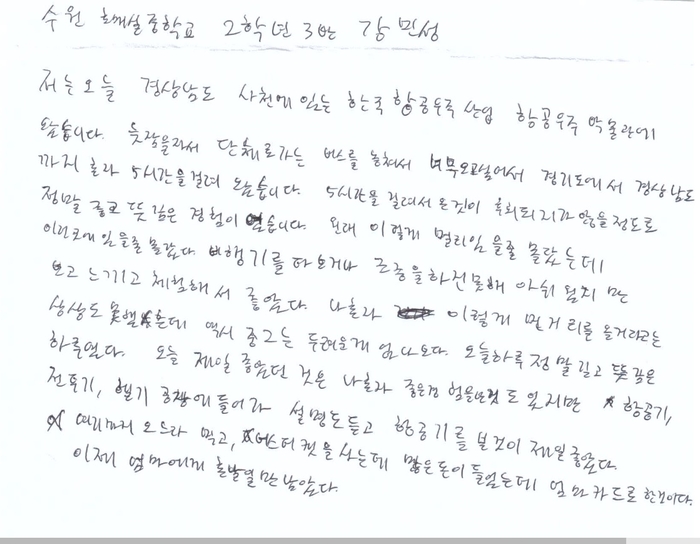 수원 중학교 2학년 3반 강민성
저는 오늘 경상남도 사천에 있는 한국 항공우주 산업 항공우주 박물관에
왔습니다. 늦잠을자서 단체로가는 버스를 놓쳐서 경기도에서 경상남도
까지 홀라 5시간을걸려 왔습니다. 5시간을 걸려서온것이 후회되지가 않을정도로
정말 좋고 뜻 깊은 경험이 였습니다. 원래 이렇게 멀리있을줄 몰랐는데
이런곳에있을줄 몰랐다. 비행기를 타보거나 조종을하진못해 아쉬웠지만
보고 느끼고 체험해서 좋았다. 나홀라 이렇게 먼거리를 올거라고는
상상도 못했는데 역시 중2는 두려운게 없나보다. 오늘하루 정말 길고 뜻깊은
하루였다. 오늘 제일 좋았던 것은 나홀라 좋은경험을한것도 있지만 항공기,
전투기, 헬기 공장에들어가 설명도듣고 항공기를 본것이 제일좋았다.
여기까지 오느라 먹고, 티켓을 사는데 많은돈이 들었는데 엄마카드로 한것이다.
이제 엄마에게 혼날일만남았다.